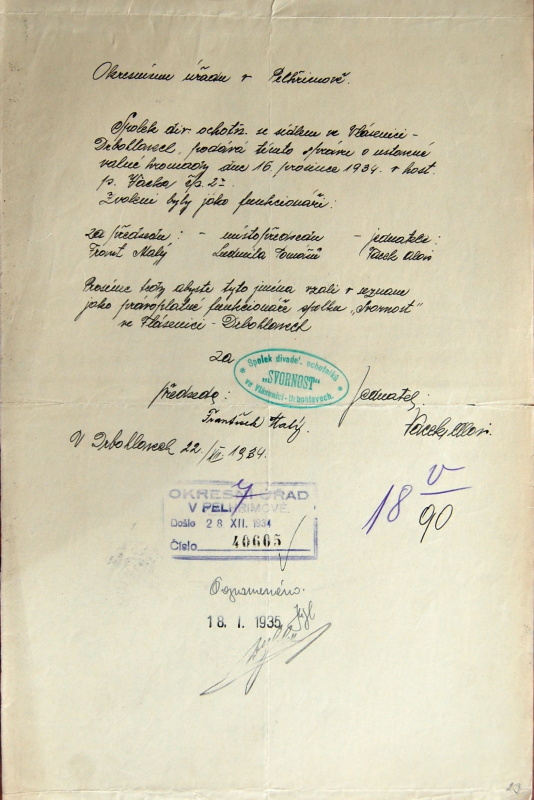 Okresnímu úřadu v Pelhřimově.
Spolek div. ochotn. se sídlem ve Vlásenici -
Drbohlavech, podává tímto zprávu o ustavné
valné hromady dne 16. prosince 1934 v host.
p. Vacka čp. 27.
Zvoleni byly jako funkcionáři:
za předsedu: - místopředsedu - jednatele:
Frant Malý Ludmila Tomášů Vacek Alois
Prosíme tedy abyste tyto jména vzali v seznam
jako právoplatné funkcionáře spolku „Svornost"
ve Vlásenici - Drbohlavech
za
Spolek divadel. ochotníků
„SVORNOST"
ve Vlásenici-Drbohlavech.
předseda: Jednatel:
František Malý. Vacek Alois.
V Drbohlavech 22/XII. 1934.
OKRESNÍ ÚŘAD
V PELHŘIMOVĚ.
Došlo 28 XII. 1934
Číslo 40605
18 V
90
Oznamenáno.
18. I. 1935